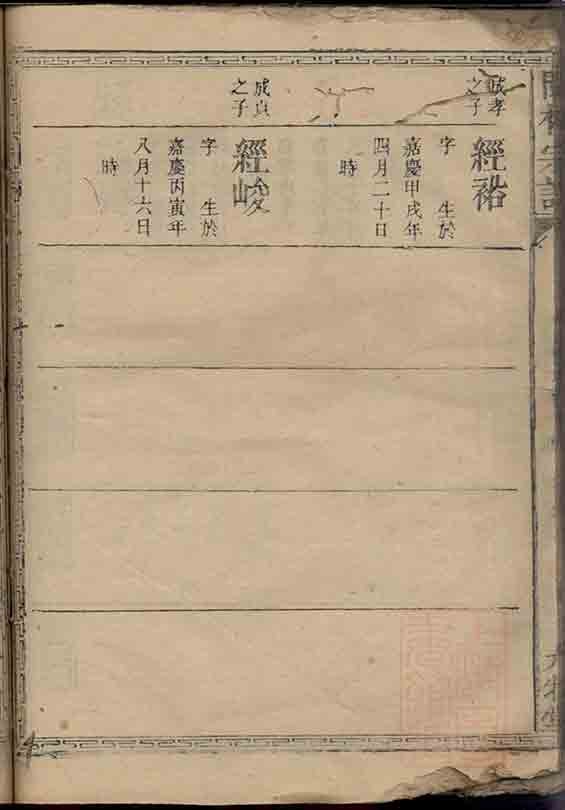 誠孝
之子
經裕
字　生於
嘉慶甲戌年
四月二十日
時
誠貞
之子
經峻
字　生於
嘉慶丙寅年
八月十六日
時
宗譜